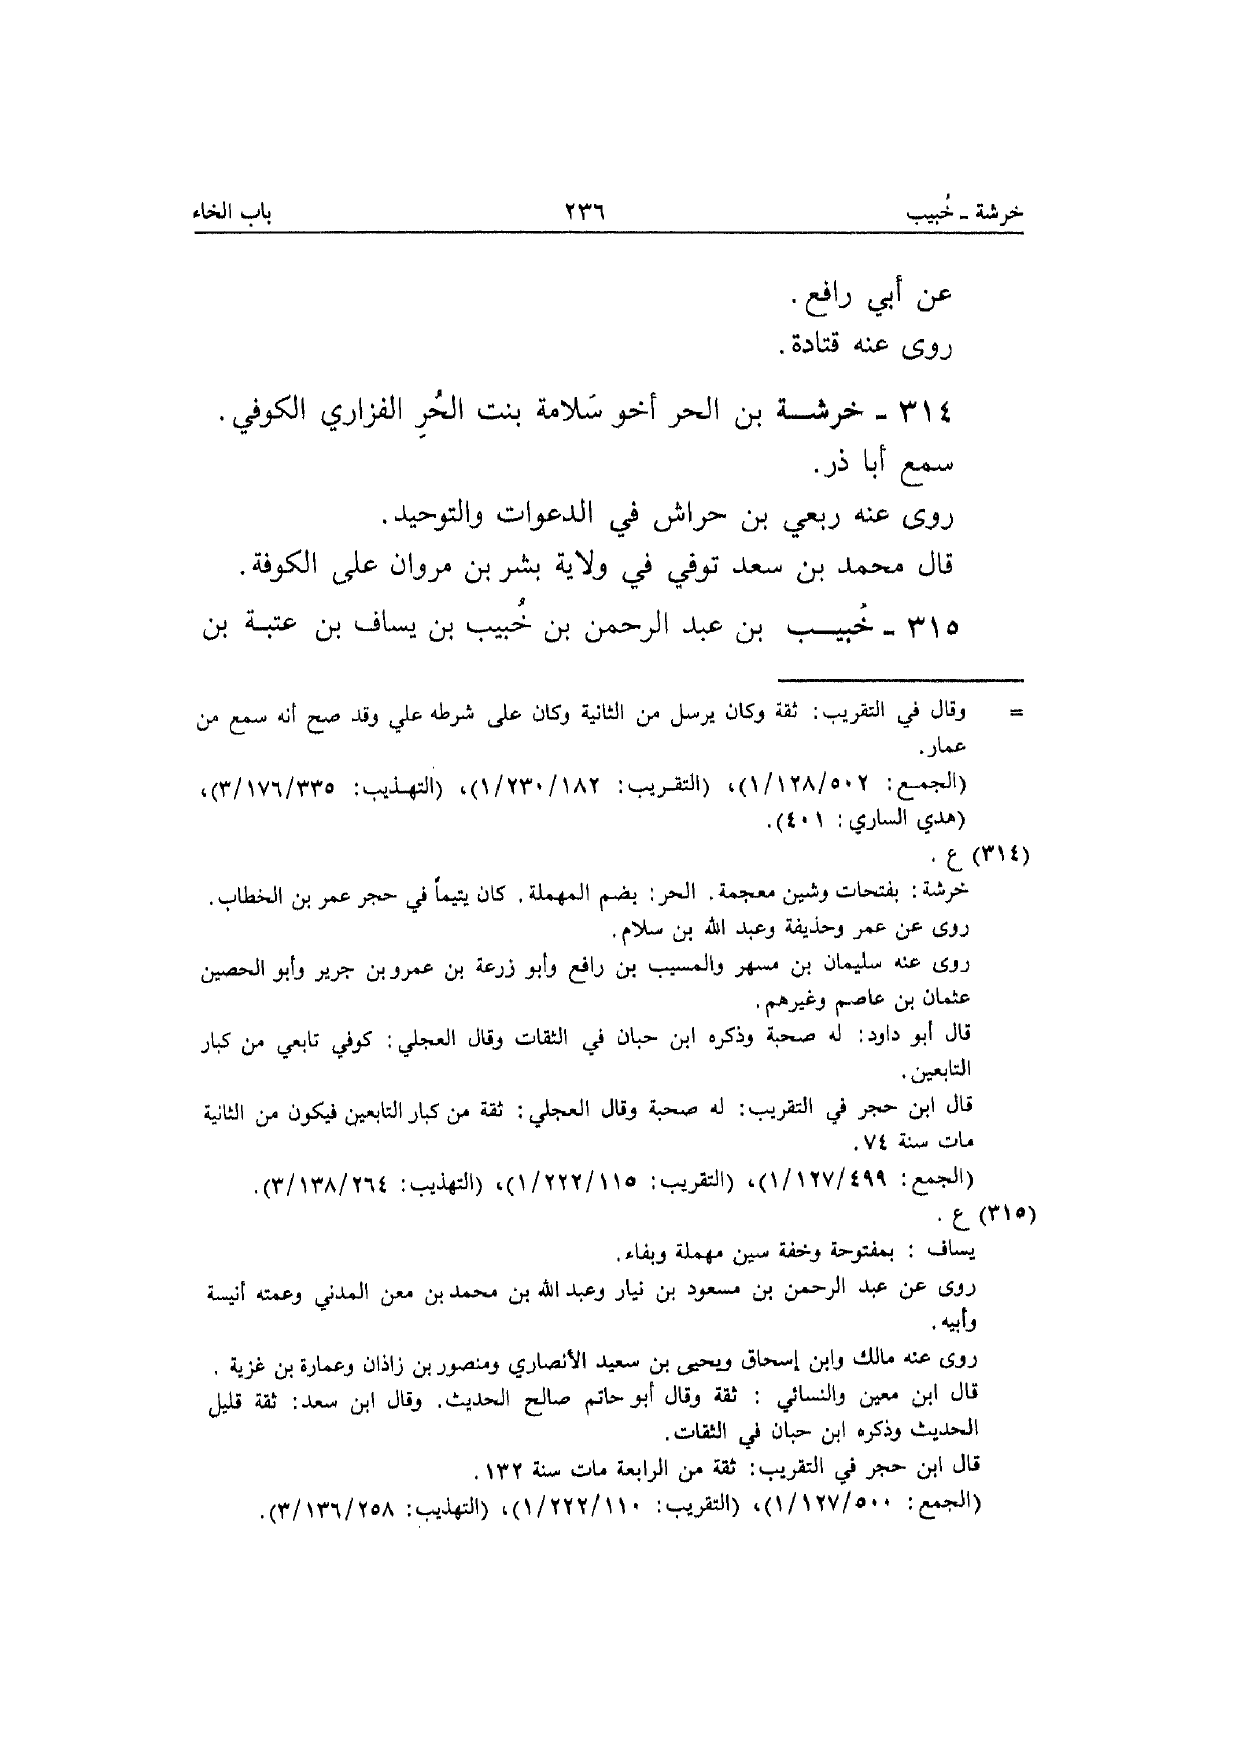 خرشة ـ خُبيب ٢٣٦ باب الخاء
عن أبي رافع .
روى عنه قتادة .
٣١٤ ـ خرشـــة بن الحر أخو سَلامة بنت الحُرِ الفزاري الكوفي .
سمع أبا ذر.
روى عنه ربعي بن حراش في الدعوات والتوحيد.
قال محمد بن سعد توفي في ولاية بشر بن مروان على الكوفة.
٣١٥ ـ خُبيـــب بن عبد الرحمن بن خُبيب بن يساف بن عتبـة بن
= وقال في التقريب: ثقة وكان يرسل من الثانية وكان على شرطه علي وقد صح أنه سمع من
عمار.
(الجمـع: ١/١٢٨/٥٠٢)، (التقـريب: ١/٢٣٠/١٨٢)، (التهـذيب: ٣/١٧٦/٣٣٥)،
(هدي الساري: ٤٠١).
(٣١٤) ع .
خرشة: بفتحات وشين معجمة. الحر: بضم المهملة. كان يتيماً في حجر عمر بن الخطاب.
روى عن عمر وحذيفة وعبد الله بن سلام.
روى عنه سليمان بن مسهر والمسيب بن رافع وأبو زرعة بن عمرو بن جرير وأبو الحصين
عثمان بن عاصم وغيرهم.
قال أبو داود: له صحبة وذكره ابن حبان في الثقات وقال العجلي: كوفي تابعي من كبار
التابعين.
قال ابن حجر في التقريب: له صحبة وقال العجلي: ثقة من كبار التابعين فيكون من الثانية
مات سنة ٧٤.
(الجمع: ١/١٢٧/٤٩٩)، (التقريب: ١/٢٢٢/١١٥)، (التهذيب: ٣/١٣٨/٢٦٤).
(٣١٥) ع .
يساف : بمفتوحة وخفة سين مهملة وبفاء.
روى عن عبد الرحمن بن مسعود بن نيار وعبد الله بن محمد بن معن المدني وعمته أنيسة
وأبيه.
روى عنه مالك وابن إسحاق ويحيى بن سعيد الأنصاري ومنصور بن زاذان وعمارة بن غزية .
قال ابن معين والنسائي : ثقة وقال أبو حاتم صالح الحديث. وقال ابن سعد: ثقة قليل
الحديث وذكره ابن حبان في الثقات.
قال ابن حجر في التقريب: ثقة من الرابعة مات سنة ١٣٢.
(الجمع: ١/١٢٧/٥٠٠)، (التقريب: ١/٢٢٢/١١٠)، (التهذيب: ٣/١٣٦/٢٥٨).